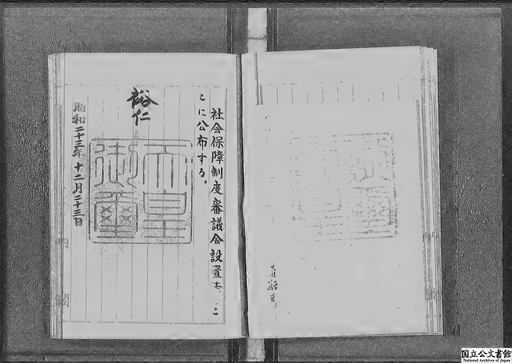 社会保障制度審議会設置法、こ
こに公布する。
裕仁
天皇
御璽
昭和二十三年十二月二十三日
内閣
国立公文書館
National Archives of Japan